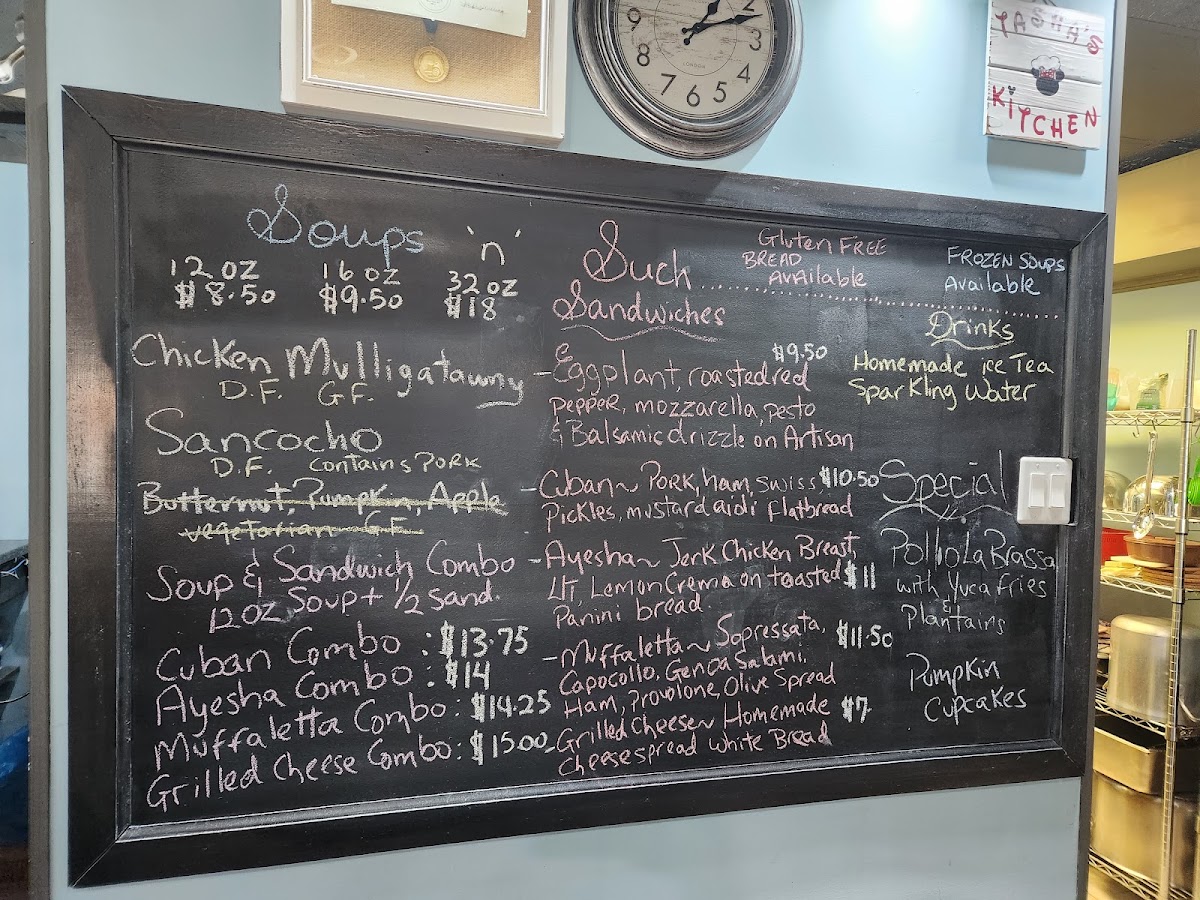 9 2 3 4 5 6 7 8
LONDON
TASHA'S
KITCHEN
Soups 'n'
12 oz 16 oz 32 oz
$8.50 $9.50 $18
Chicken Mulligatawny
D.F. G.F.
Sancocho
D.F. contains Pork
Butternut, Pumpkin, Apple
vegetarian G.F.
Soup & Sandwich Combo
12oz Soup + 1/2 Sand.
Cuban Combo : $13.75
Ayesha Combo : $14
Muffaletta Combo : $14.25
Grilled Cheese Combo : $15.00
Such
Sandwiches
Gluten FREE
BREAD
Available
$9.50
- Eggplant, roasted red
pepper, mozzarella, pesto
& Balsamic drizzle on Artisan
- Cuban ~ Pork, ham, swiss, $10.50
Pickles, mustard aioli flatbread
- Ayesha ~ Jerk Chicken Breast,
LT, Lemon Crema on toasted $11
Panini bread
- Muffaletta ~ Sopressata, $11.50
Capocollo, Genoa Salami,
Ham, Provolone, Olive Spread
- Grilled Cheese ~ Homemade $7.
cheese spread white Bread
FROZEN SOUPS
Available
Drinks
Homemade ice Tea
Sparkling Water
Special
Pollo La Brassa
with Yuca fries
&
Plantains
Pumpkin
Cupcakes